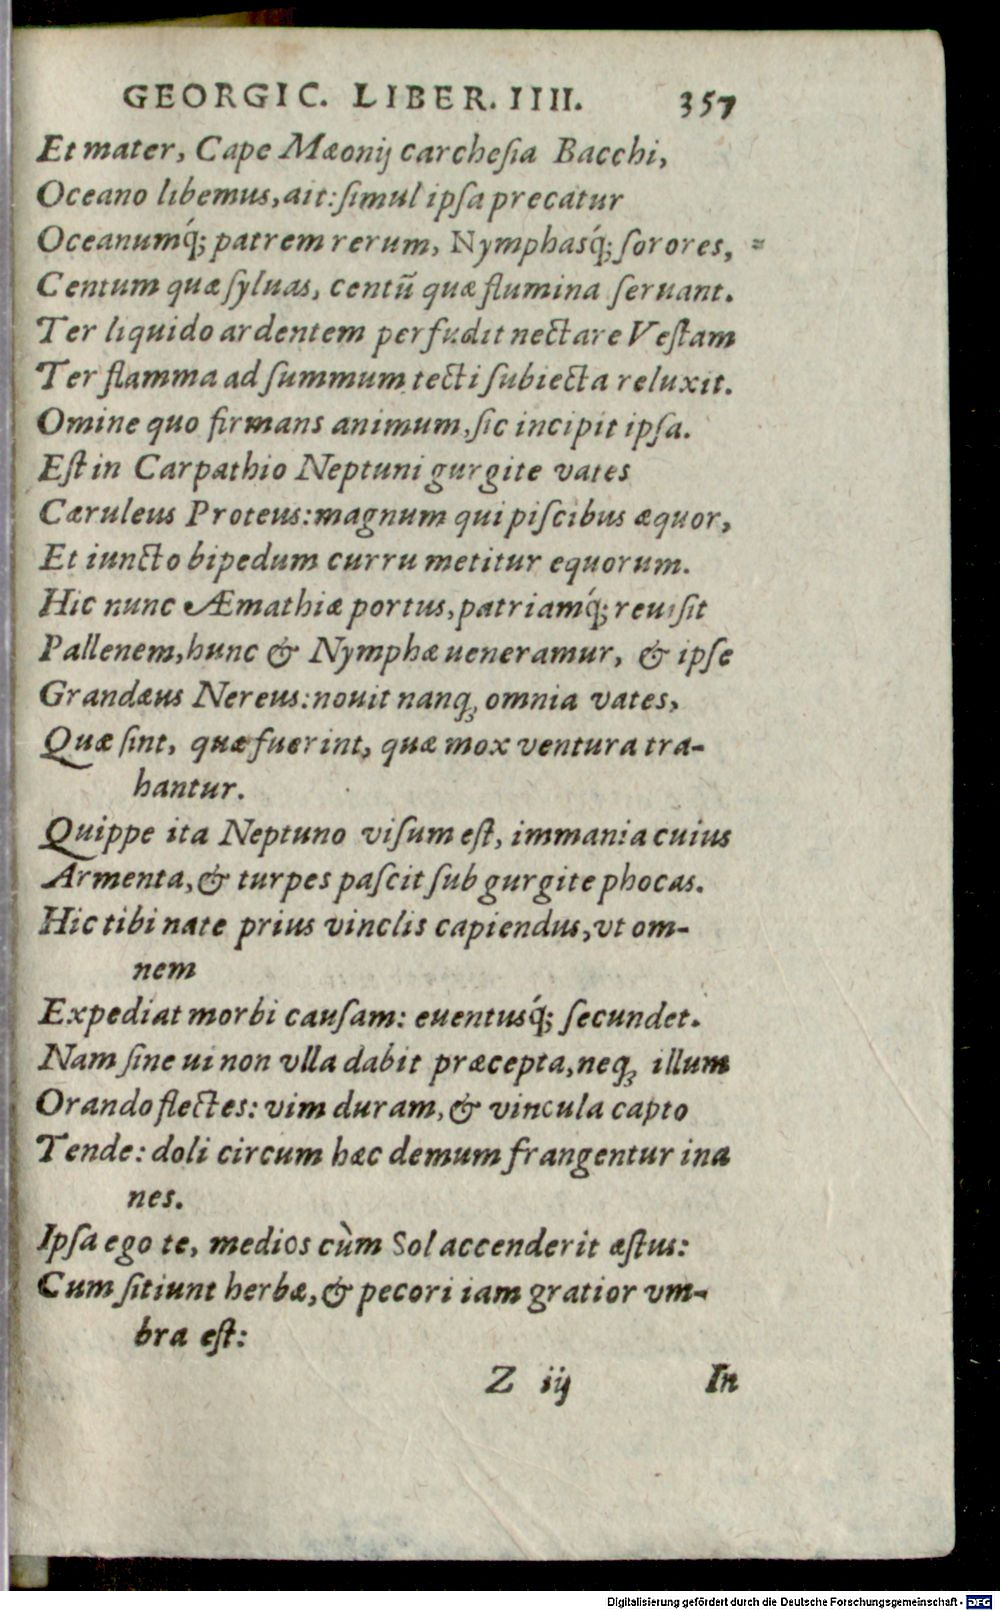 GEORGIC. LIBER. IIII. 357
Et mater, Cape Mæonij carcheſia Bacchi,
Oceano libemus, ait: ſimul ipſa precatur
Oceanumq́; patrem rerum, Nymphasq́; ſorores,
Centum quæ ſyluas, centū quæ flumina ſeruant.
Ter liquido ardentem perfudit nectare Veſtam
Ter flamma ad ſummum tecti ſubiecta reluxit.
Omine quo firmans animum, ſic incipit ipſa.
Eſt in Carpathio Neptuni gurgite vates
Cæruleus Proteus: magnum qui piſcibus æquor,
Et iuncto bipedum curru metitur equorum.
Hic nunc Æmathiæ portus, patriamq́; reuiſit
Pallenem, hunc & Nymphæ ueneramur, & ipſe
Grandæus Nereus: nouit nanq; omnia vates,
Quæ ſint, quæ fuerint, quæ mox ventura tra-
hantur.
Quippe ita Neptuno viſum eſt, immania cuius
Armenta, & turpes paſcit ſub gurgite phocas.
Hic tibi nate prius vinclis capiendus, vt om-
nem
Expediat morbi cauſam: euentusq́; ſecundet.
Nam ſine ui non vlla dabit præcepta, neq; illum
Orando flectes: vim duram, & vincula capto
Tende: doli circum hæc demum frangentur ina
nes.
Ipſa ego te, medios cùm Sol accenderit æſtus:
Cum ſitiunt herbæ, & pecori iam gratior vm-
bra eſt:
Z iij In
Digitalisierung gefördert durch die Deutsche Forschungsgemeinschaft - DFG